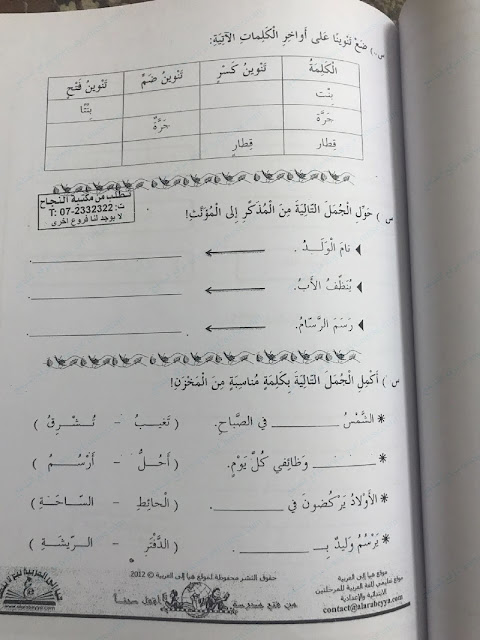 س ) ضَعْ تَنْوينًا عَلى أَواخِرِ الْكَلِماتِ الآتِيَةِ:
الْكَلِمَةُ تَنْوينُ كَسْرٍ تَنْوينُ ضَمٍّ تَنْوينُ فَتْحٍ
بِنْت بِنْتًا
جَرَّة جَرَّةٌ
قِطار قِطارٍ
تطلب من مكتبة النجاح
ت: 2332322-07 :T
لا يوجد لنا فروع اخرى
س ) حَوِّلِ الْجُمَلَ التّالِيَةَ مِنَ الْمُذَكَّرِ إِلى الْمُؤَنَّثِ!
نامَ الْوَلَدُ.
يُنَظِّفُ الأَبُ.
رَسَمَ الرَّسّامُ.
س ) أَكْمِلِ الْجُمَلَ التّالِيَةَ بِكَلِمَةٍ مُناسِبَةٍ مِنَ الْمَخْزَنِ!
* الشَّمْسُ ________ في الصَّباحِ. ( تَغيبُ - تُشْرِقُ )
* ________ وَظائِفي كُلَّ يَوْمٍ. ( أَحُلُّ - أَرْسُمُ )
* الأَوْلادُ يَرْكُضونَ في ________. ( الْحائِطِ - السّاحَةِ )
* يَرْسُمُ وَليدٌ بِـ ________. ( الدَّفْتَرِ - الرّيشَةِ )
حقوق النشر محفوظة لموقع هيا إلى العربية © 2012
موقع هيا إلى العربية
موقع تعليمي للغة العربية للمرحلتين
الابتدائية والإعدادية
contact@alarabeyya.com
www.alarabeyya.com